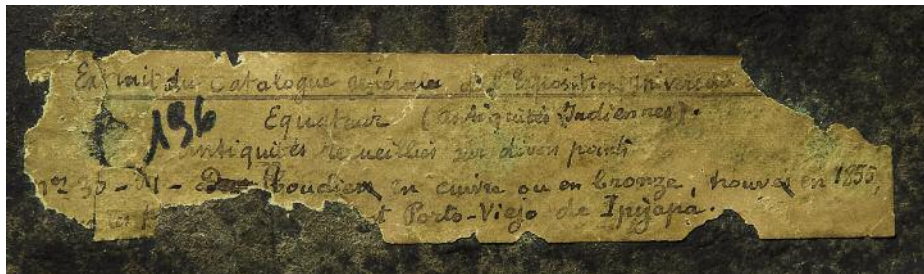 Extrait du Catalogue général de l'Exposition Universelle
196
Equateur (antiquités Indiennes).
antiquités recueillies sur divers points
Boucliers en cuivre ou en bronze, trouvés en 1855,
Porto-Viejo de Ipijapa.